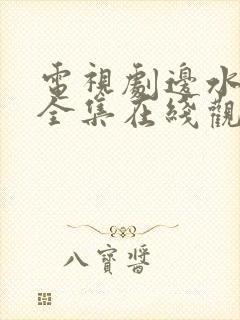 電視劇邊水
全集在綫觀
八寶醬